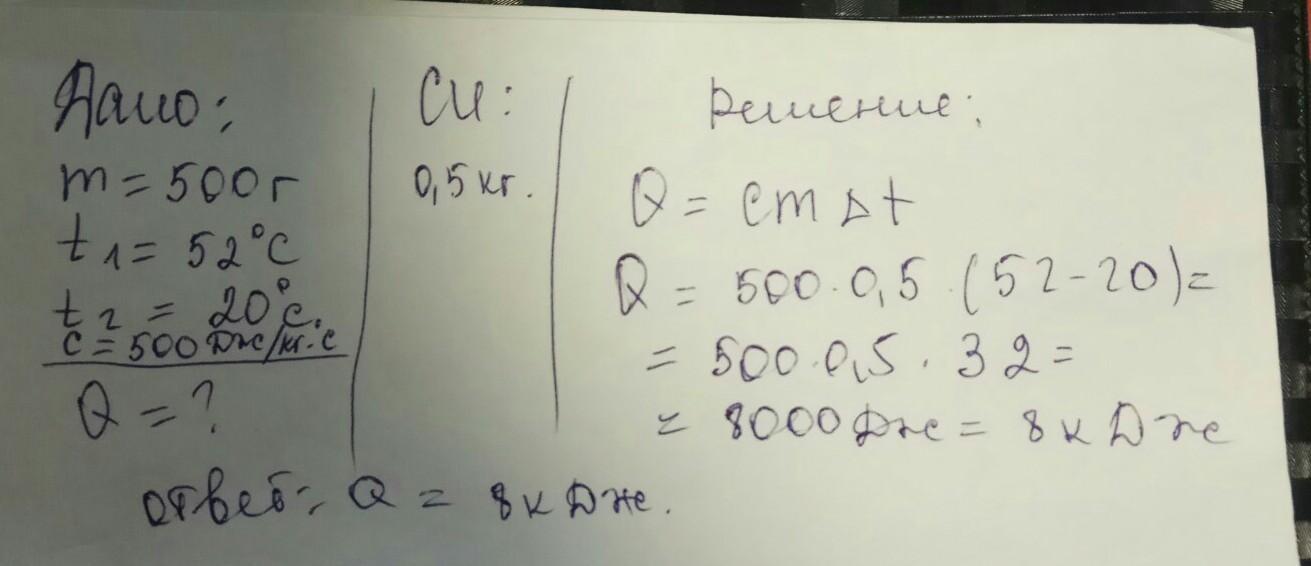 Дано:
m = 500 г
t₁ = 52°C
t₂ = 20°C.
c = 500 Дж/кг·с
Q = ?
СИ:
0,5 кг.
Решение:
Q = cm Δt
Q = 500 · 0,5 · (52 - 20) =
= 500 · 0,5 · 32 =
= 8000 Дж = 8 кДж
ответ: Q = 8 кДж.